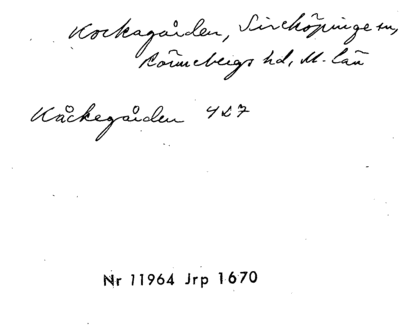 Kockagården, Sireköpinge sn,
Rönnebergs hd, M. län
Kåckegården 427
Nr 11964 Jrp 1670